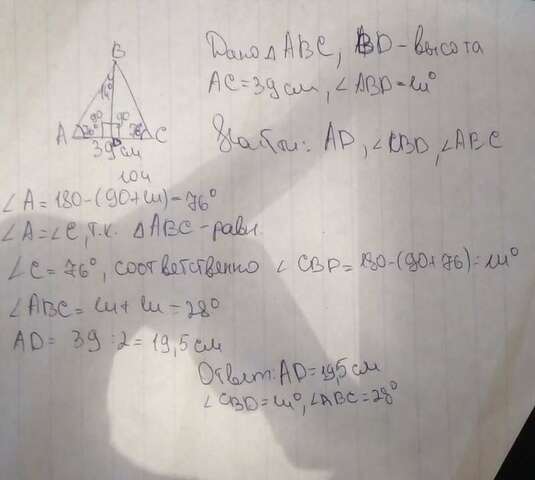 Дано Δ ABC, BD - высота
AC = 39 см, ∠ABD = 14°
Найти: AD, ∠CBD, ∠ABC
B
14°
90 90
A 76° 76° C
D
39 см
∠A = 180 - (90 + 14) = 76°
∠A = ∠C, т.к. Δ ABC - равн.
∠C = 76°, соответственно ∠ CBD = 180 - (90 + 76) = 14°
∠ABC = 14 + 14 = 28°
AD = 39 : 2 = 19,5 см
Ответ: AD = 19,5 см
∠CBD = 14°, ∠ABC = 28°